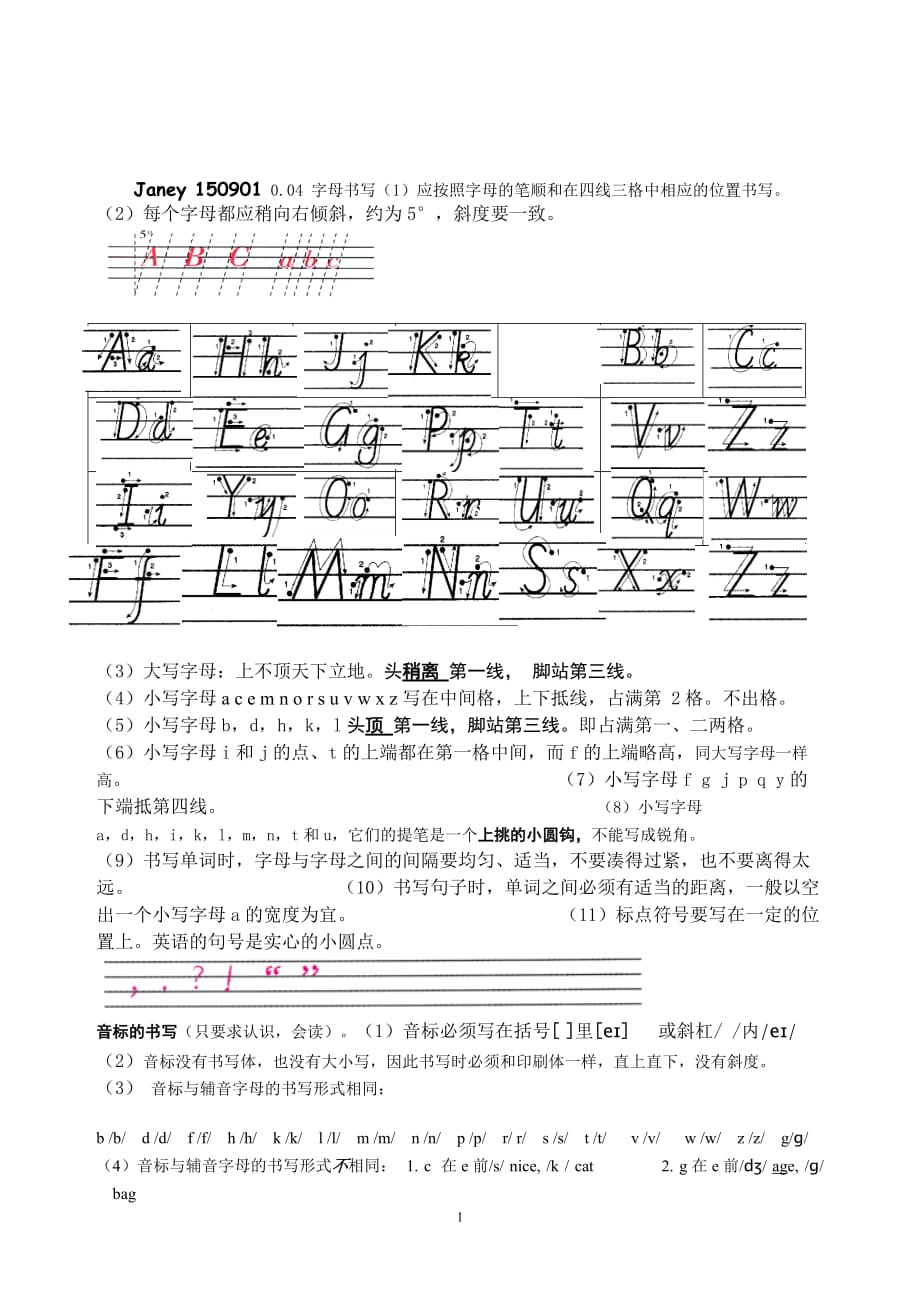 Janey 150901 0.04 字母书写（1）应按照字母的笔顺和在四线三格中相应的位置书写。
（2）每个字母都应稍向右倾斜，约为 5°，斜度要一致。
5°
A B C a b c
Aa Hh Jj Kk Bb Cc
Dd Ee Gg Pp Tt Vv Zz
Ii Yy Oo Rr Uu Qq Ww
Ff Ll Mm Nn Ss Xx Zz
（3）大写字母：上不顶天下立地。头稍离 第一线， 脚站第三线。
（4）小写字母 a c e m n o r s u v w x z 写在中间格，上下抵线，占满第 2 格。不出格。
（5）小写字母 b，d，h，k，l 头顶 第一线，脚站第三线。即占满第一、二两格。
（6）小写字母 i 和 j 的点、t 的上端都在第一格中间，而 f 的上端略高，同大写字母一样
高。 （7）小写字母 f g j p q y 的
下端抵第四线。 （8）小写字母
a，d，h，i，k，l，m，n，t 和 u，它们的提笔是一个上挑的小圆钩，不能写成锐角。
（9）书写单词时，字母与字母之间的间隔要均匀、适当，不要凑得过紧，也不要离得太
远。 （10）书写句子时，单词之间必须有适当的距离，一般以空
出一个小写字母 a 的宽度为宜。 （11）标点符号要写在一定的位
置上。英语的句号是实心的小圆点。
, . ? ! “ ”
音标的书写（只要求认识，会读）。（1）音标必须写在括号[ ]里[eɪ] 或斜杠/ /内/eɪ/
（2）音标没有书写体，也没有大小写，因此书写时必须和印刷体一样，直上直下，没有斜度。
（3） 音标与辅音字母的书写形式相同：
b /b/ d /d/ f /f/ h /h/ k /k/ l /l/ m /m/ n /n/ p /p/ r/ r/ s /s/ t /t/ v /v/ w /w/ z /z/ g/ɡ/
（4）音标与辅音字母的书写形式不相同： 1. c 在 e 前/s/ nice, /k / cat 2. g 在 e 前/dʒ/ age, /ɡ/
bag
1